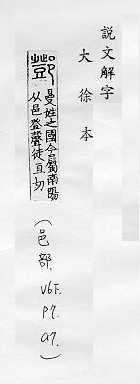 說文解字
大徐本
鄧
曼姓之國今屬南陽
从邑登聲徒亙切
(邑部.
V6下.
P7.
a7.)